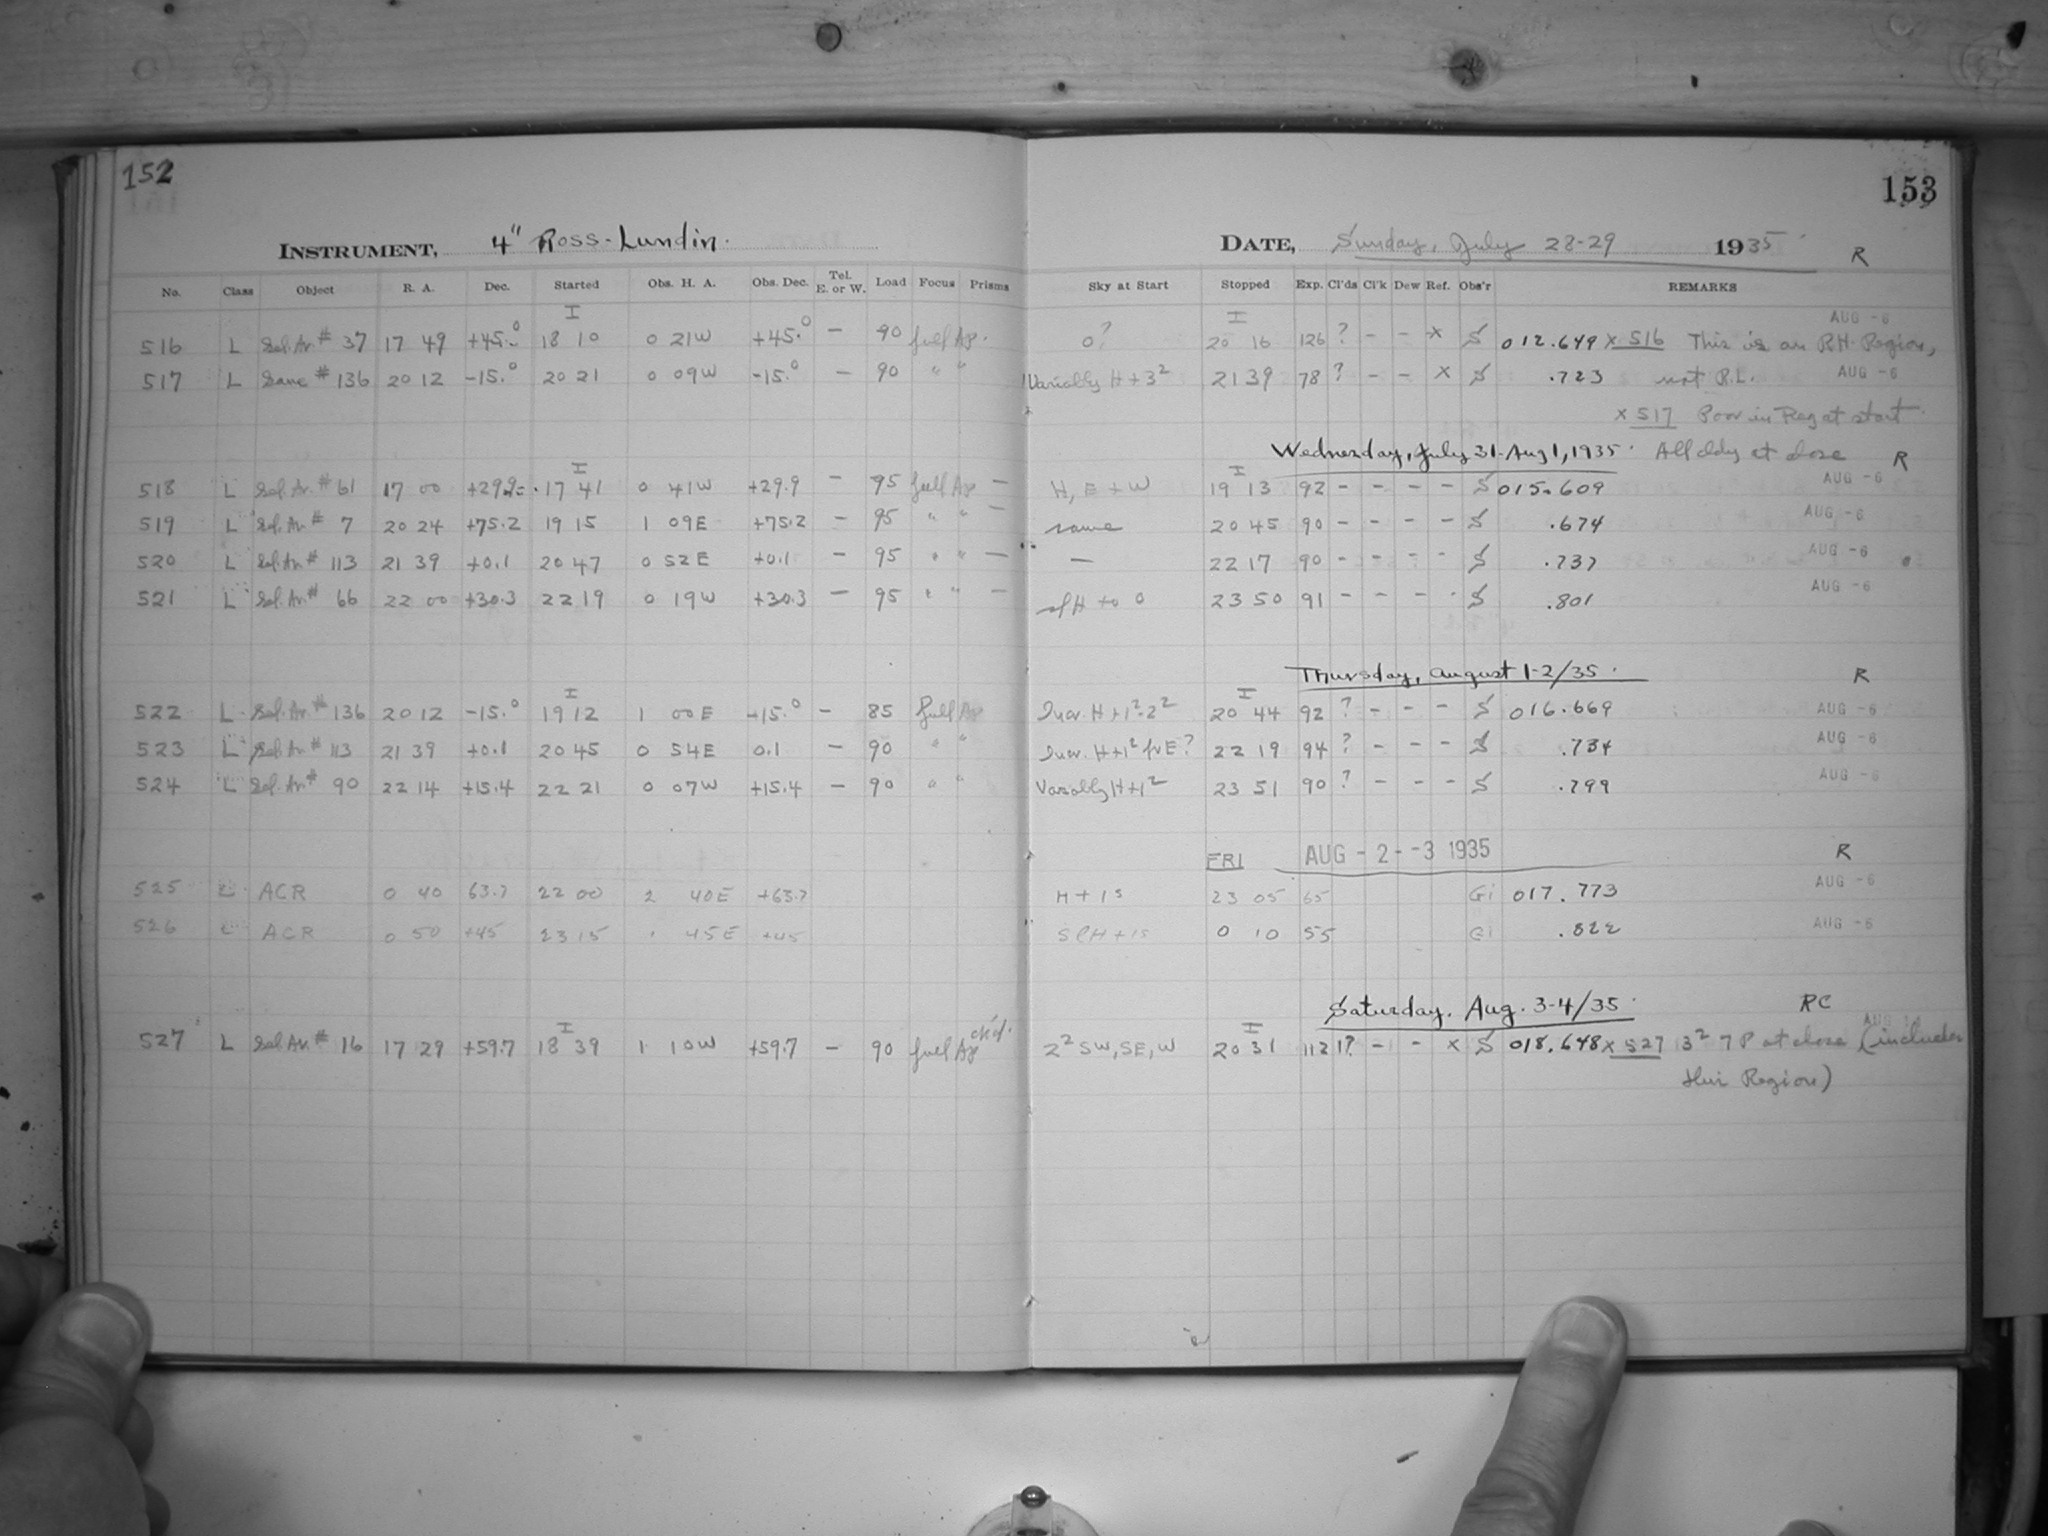 152
153
INSTRUMENT, 4" Ross-Lundin.
DATE, Sunday, July 28-29 1935 R
No. Class Object R. A. Dec. Started Obs. H. A. Obs. Dec. Tel. E. or W. Load Focus Prisms Sky at Start Stopped Exp. Cl'ds Cl'k Dew Ref. Obs'r REMARKS
I I AUG -6
516 L Sel. Ar. # 37 17 49 +45.0 18 10 0 21W +45.0 - 90 full Ap. 0? 20 16 126 ? - - x S 012.649 x 516 This is an RH Region,
517 L Same # 136 20 12 -15.0 20 21 0 09W -15.0 - 90 " " Variably H+3² 21 39 78 ? - - x S .723 not R.L. AUG -6
x 517 Poor in Reg at start
Wednesday, July 31-Aug 1, 1935. All cldy at close R
I I
518 L Sel. Ar. # 61 17 00 +29.9 17 41 0 41W +29.9 - 95 full Ap - H, E + W 19 13 92 - - - - S 015.609 AUG -6
519 L Sel. Ar. # 7 20 24 +75.2 19 15 1 09E +75.2 - 95 " " - same 20 45 90 - - - - S .674 AUG -6
520 L Sel. Ar. # 113 21 39 +0.1 20 47 0 52E +0.1 - 95 " " - - 22 17 90 - - - - S .737 AUG -6
521 L Sel. Ar. # 66 22 00 +30.3 22 19 0 19W +30.3 - 95 " " - sl H to 0 23 50 91 - - - - S .801 AUG -6
Thursday, August 1-2/35. R
I I
522 L Sel. Ar. # 136 20 12 -15.0 19 12 1 00E -15.0 - 85 full Ap Incr. H+1²-2² 20 44 92 ? - - - S 016.669 AUG -6
523 L Sel. Ar. # 113 21 39 +0.1 20 45 0 54E 0.1 - 90 " " Incr. H+1² fr E? 22 19 94 ? - - - S .734 AUG -6
524 L Sel. Ar. # 90 22 14 +15.4 22 21 0 07W +15.4 - 90 " " Variably H+1² 23 51 90 ? - - - S .799 AUG -6
FRI AUG -2--3 1935 R
525 L ACR 0 40 63.7 22 00 2 40E +63.7 H + 1s 23 05 65 Gi 017.773 AUG -6
526 L ACR 0 50 +45 23 15 1 45E +45 SlH+1s 0 10 55 Gi .822 AUG -6
Saturday, Aug. 3-4/35. RC
I I
527 L Sel. Ar. # 16 17 29 +59.7 18 39 1 10W +59.7 - 90 full Ap ck'd. 2² SW, SE, W 20 31 112 1? - - x S 018.648 x 527 3² 7 P at close (includes
this Region)